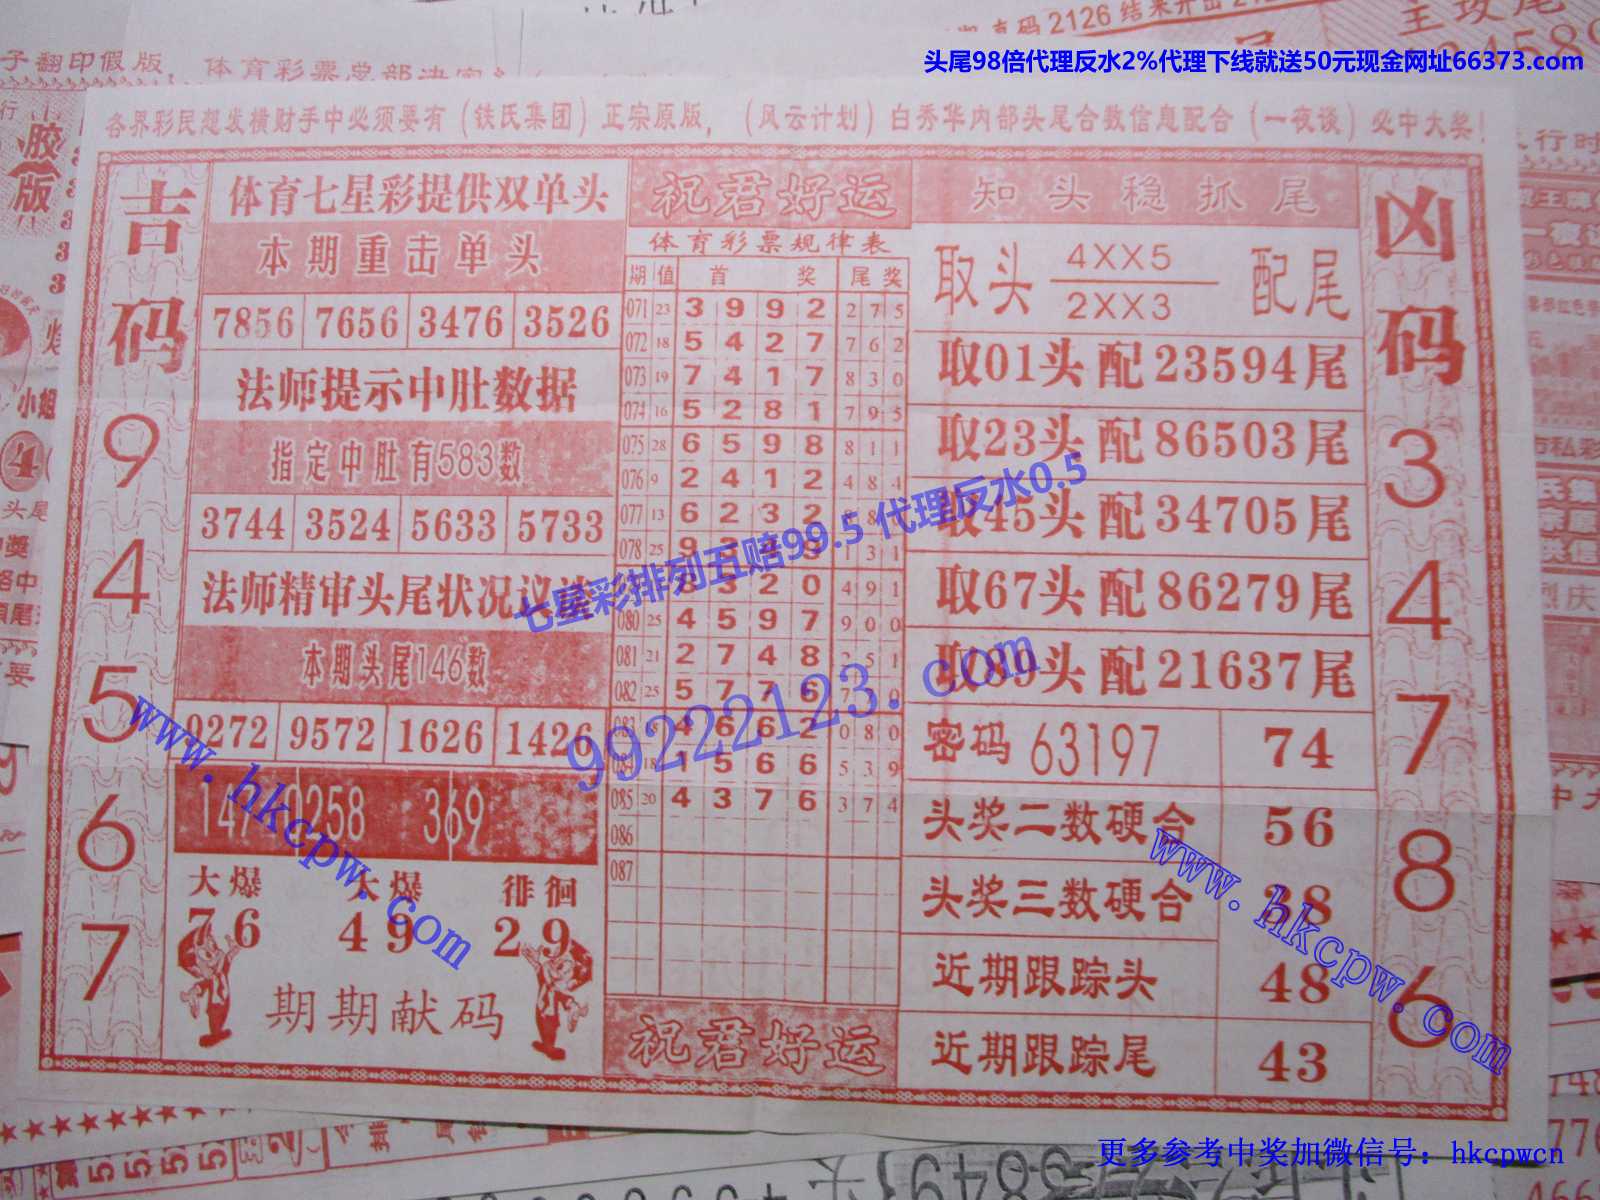 头尾98倍代理反水2%代理下线就送50元现金网址66373.com
各界彩民想发横财手中必须要有（铁氏集团）正宗原版，（风云计划）白秀华内部头尾合数信息配合（一夜谈）必中大奖！
吉码
9
4
5
6
7
体育七星彩提供双单头
本期重击单头
7856 7656 3476 3526
法师提示中肚数据
指定中肚有583数
3744 3524 5633 5733
法师精审头尾状况议论
本期头尾146数
9272 9572 1626 1426
147 0258 369
大爆 大爆 徘徊
76 49 29
期期献码
祝君好运
体育彩票规律表
期 值 首 奖 尾 奖
071 23 3 9 9 2 2 7 5
072 18 5 4 2 7 7 6 2
073 19 7 4 1 7 8 3 0
074 16 5 2 8 1 7 9 5
075 28 6 5 9 8 8 1 1
076 9 2 4 1 2 4 8 4
077 13 6 2 3 2 8
078 25 9 1 3 1
3 2 0 4 9 1
080 25 4 5 9 7 9 0 0
081 21 2 7 4 8 2 5 1
082 25 5 7 7 6 7 0
083 18 4 6 6 2 0 8 0
084 18 1 5 6 6 5 3 9
085 20 4 3 7 6 3 7 4
086
087
祝君好运
知头稳抓尾
取头 4XX5 配尾
2XX3
取01头配23594尾
取23头配86503尾
取45头配34705尾
取67头配86279尾
取89头配21637尾
密码 63197 74
头奖二数硬合 56
头奖三数硬合 38
近期跟踪头 48
近期跟踪尾 43
凶码
3
4
7
8
6
七星彩排列五赔99.5 代理反水0.5
99222123.com
www.hkcpw.com
www.hkcpw.com
更多参考中奖加微信号：hkcpwcn